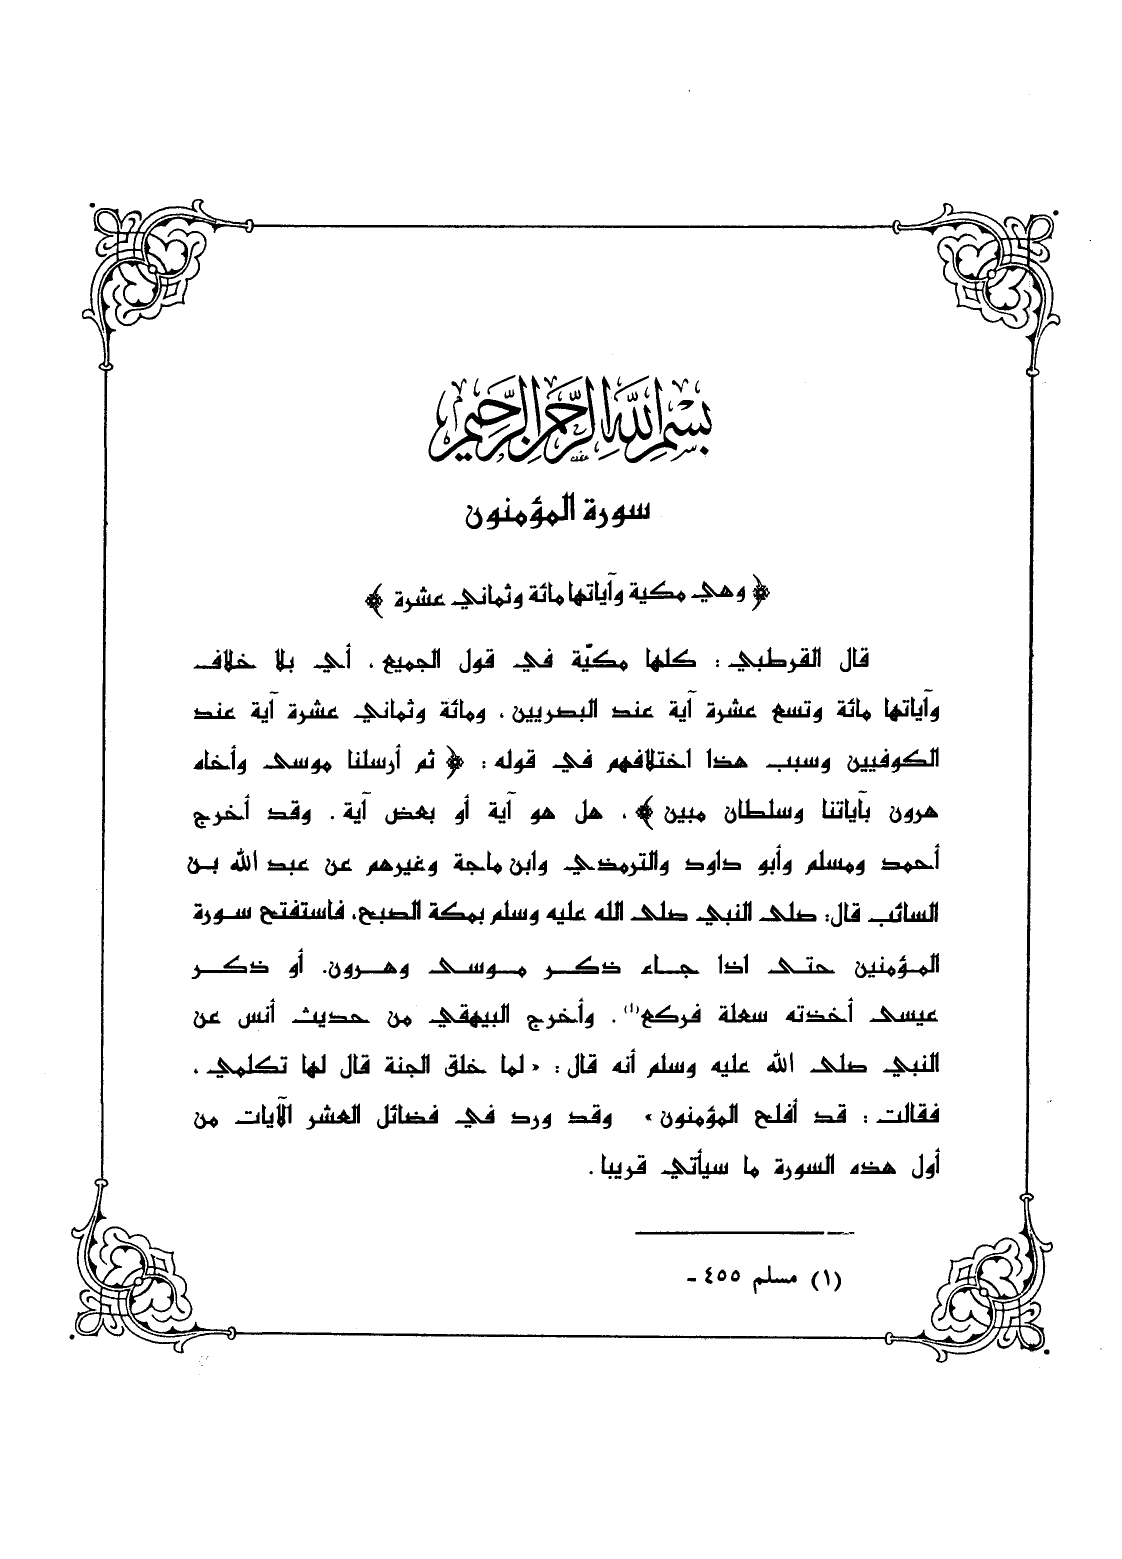 بسم الله الرحمن الرحيم
سورة المؤمنون
﴿ وهي مكية وآياتها مائة وثماني عشرة ﴾
قال القرطبي : كلها مكيّة في قول الجميع ، أي بلا خلاف
وآياتها مائة وتسع عشرة آية عند البصريين ، ومائة وثماني عشرة آية عند
الكوفيين وسبب هذا اختلافهم في قوله : ﴿ ثم أرسلنا موسى وأخاه
هرون بآياتنا وسلطان مبين ﴾ ، هل هو آية أو بعض آية . وقد أخرج
أحمد ومسلم وأبو داود والترمذي وابن ماجة وغيرهم عن عبد الله بن
السائب قال: صلى النبي صلى الله عليه وسلم بمكة الصبح، فاستفتح سورة
المؤمنين حتى اذا جاء ذكر موسى وهرون. أو ذكر
عيسى أخذته سعلة فركع(١) . وأخرج البيهقي من حديث أنس عن
النبي صلى الله عليه وسلم أنه قال : « لما خلق الجنة قال لها تكلمي ،
فقالت : قد أفلح المؤمنون » وقد ورد في فضائل العشر الآيات من
أول هذه السورة ما سيأتي قريبا .
(١) مسلم ٤٥٥ -